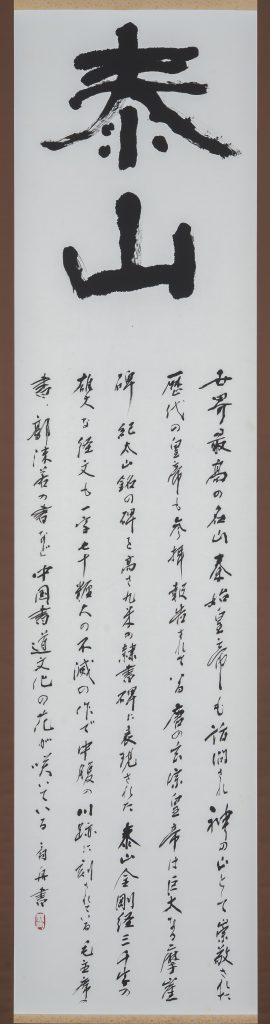 泰山
世界最高の名山 秦始皇帝も訪問され 神の山として崇敬された
歴代の皇帝も参拝報告されている 唐の玄宗皇帝は巨大なる摩崖
碑 紀太山銘の碑を高さ九米の隷書碑に表現された 泰山金剛経三千字の
雄大な経文も一字七十糎大の不滅の作で中腹の川跡に刻されている 毛主席の
書、郭沫若の書など中国書道文化の花が咲いている 舟書